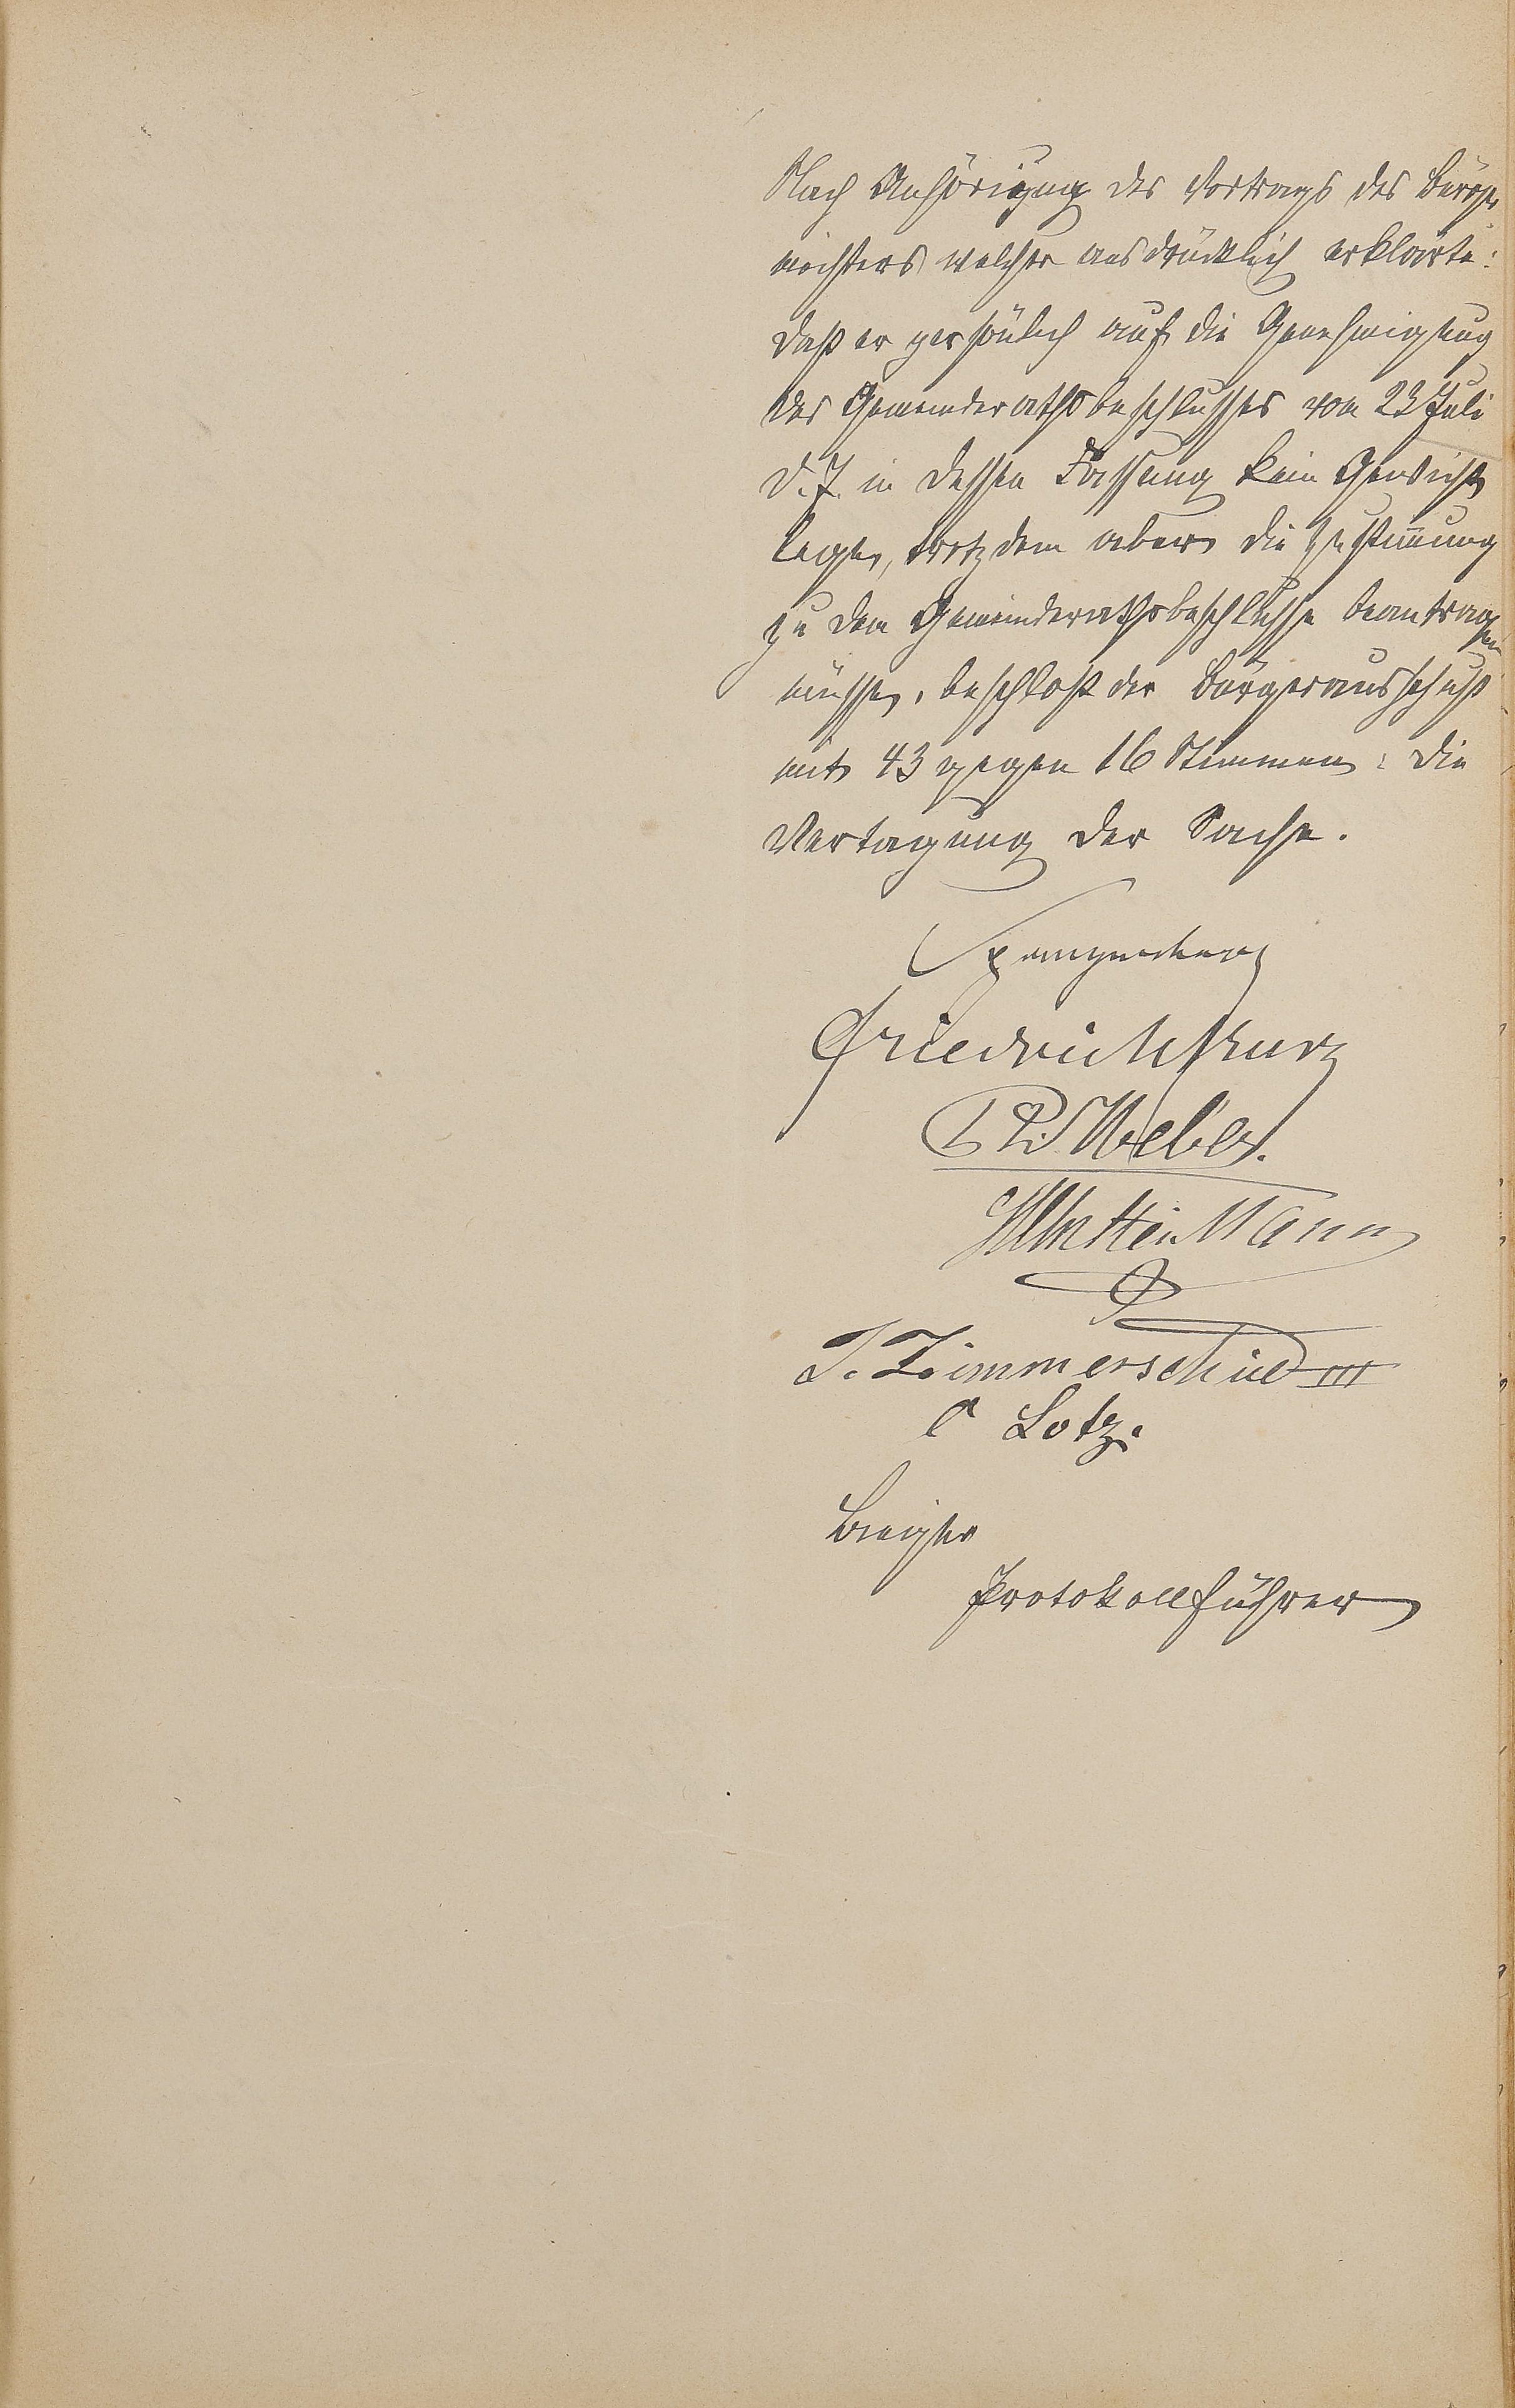 Nach Anhörigung des Vortrags des Bürger
meisters welcher ausdrücklich erklärte:
daß er persönlich auf die Genehmigung
des Gemeinderathsbeschlusses vom 23 Juli
d. J. in dessen Fassung kein Gewicht
lege, trotzdem aber die Zustim̄ung
zu dem Gemeinderathsbeschlusse beantragen
müsse, beschloß der Bürgerausschuß
mit 43 gegen 16 Stimmen: die
Vertagung der Sache.
Spangenberg
Friedrich Kurz
Weber.
J. Zimmerschied III
C Lotz.
Protokollführer